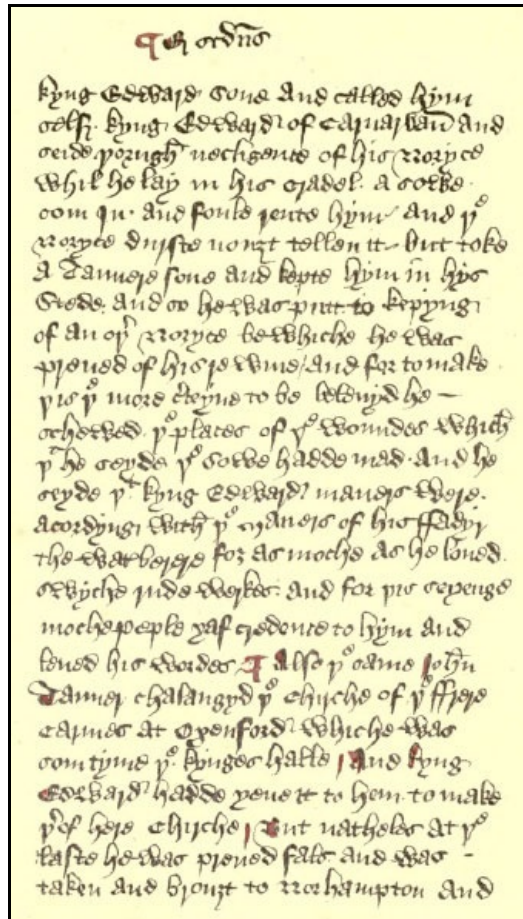 ¶ Edwardus
kyng Edward sone And called hym
self kyng Edward of Carnarvan and
seide þorugh necligence of his Noryce
whil he lay in his cradel. A sowe
com In. and foule rente hym. And þe
Noryce durste nouȝt tellen it. but toke
A Tannere sone and kepte hym in hys
Stede. and so he was putt to kepyng
of an oþr Noryce be whiche he was
preued of his rewme, and for to make
þis þe more c'teyne to be beleuyd he –
schewed þe places of þe woundes which
þt he seyde þe Sowe hadde mad. And he
seyde þt kyng Edward maners were.
acordyng with þe maners of his ffadyr
the waterberere for as moche as he loued.
swyche rude werkes. and for þis seyenge
moche peple yaf credence to hym and
leued his wordes ¶ Also þe same John
Tanner chalangyd þe Chirche of þe ffrere
Carmes at Oxenford whiche was
somtyme þe kynges halle And kyng
Edward hadde yeue it to hem to make
þrof here Chirche But natheles at þe
laste he was preued fals and was –
taken and brouȝt to Norhampton and